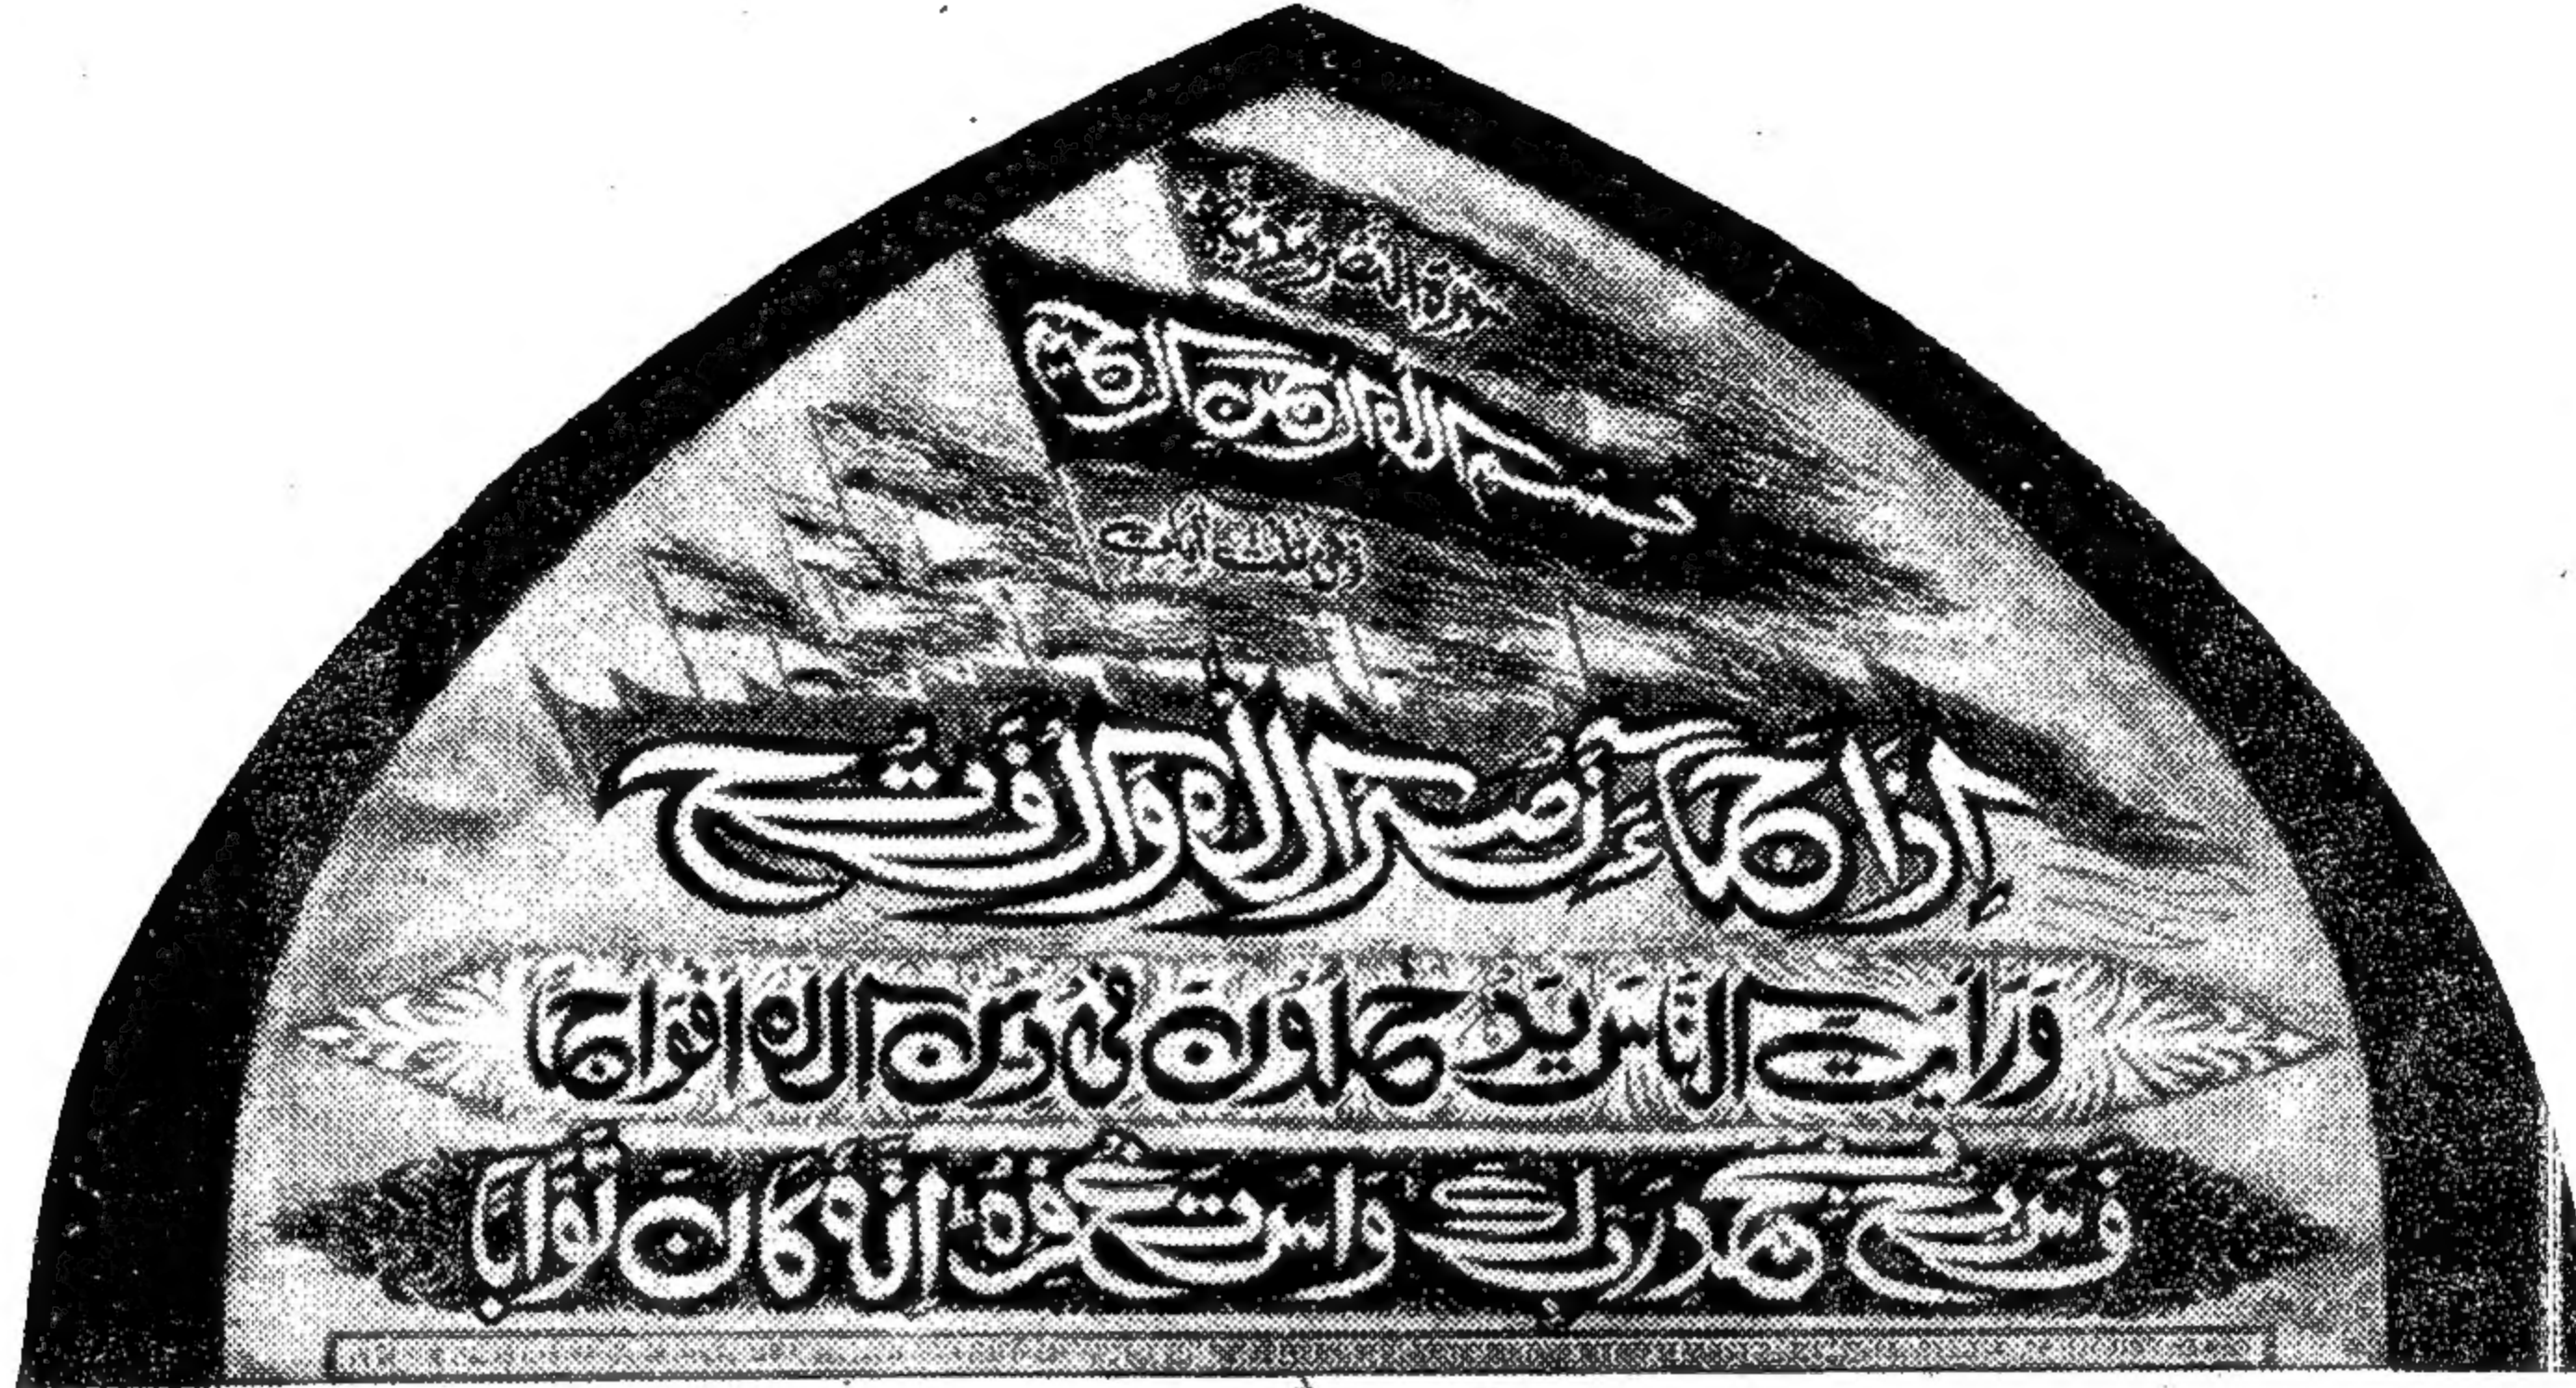 سورة النصر
بسم الله الرحمن الرحيم
وهي ثلث آيات
إِذَا جَاءَ نَصْرُ اللهِ وَالْفَتْحُ
وَرَأَيْتَ النَّاسَ يَدْخُلُونَ فِي دِينِ اللهِ أَفْوَاجًا
فَسَبِّحْ بِحَمْدِ رَبِّكَ وَاسْتَغْفِرْهُ إِنَّهُ كَانَ تَوَّابًا